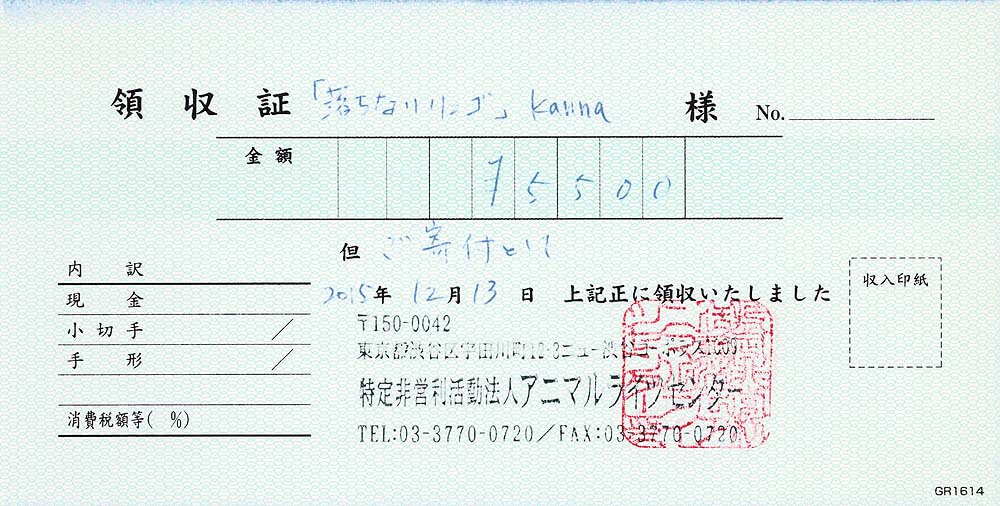 領収証 「落ちないリンゴ」 kanna 様 No.
金額 ¥5500
但 ご寄付として
内訳
現金
小切手 /
手形 /
消費税額等( %)
2015年 12月13日 上記正に領収いたしました
収入印紙
〒150-0042
東京都渋谷区宇田川町12-3ニュー渋谷コーポラス1009
特定非営利活動法人アニマルライツセンター
TEL:03-3770-0720/FAX:03-3770-0720
GR1614